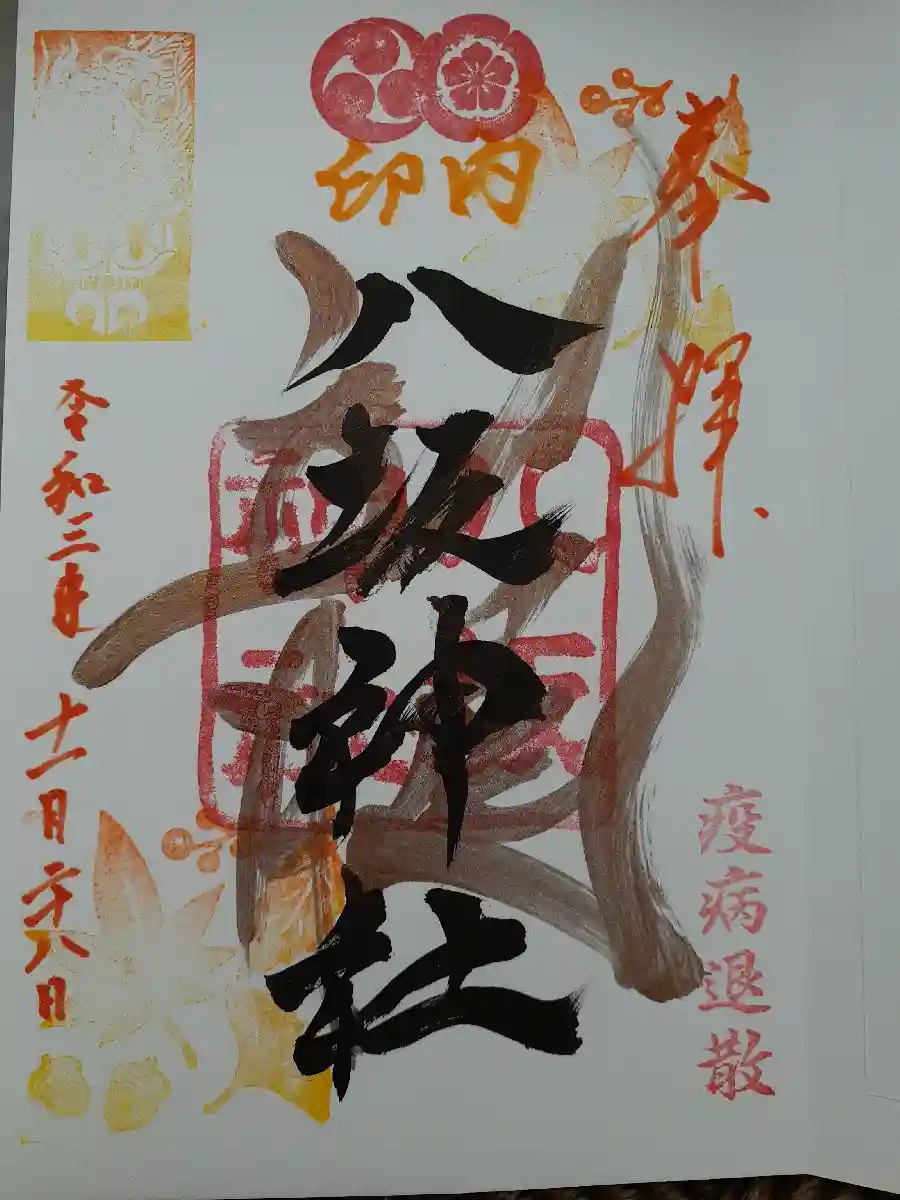 奉拝
疫病退散
印内
八坂神社
令和三年
十一月二十八日